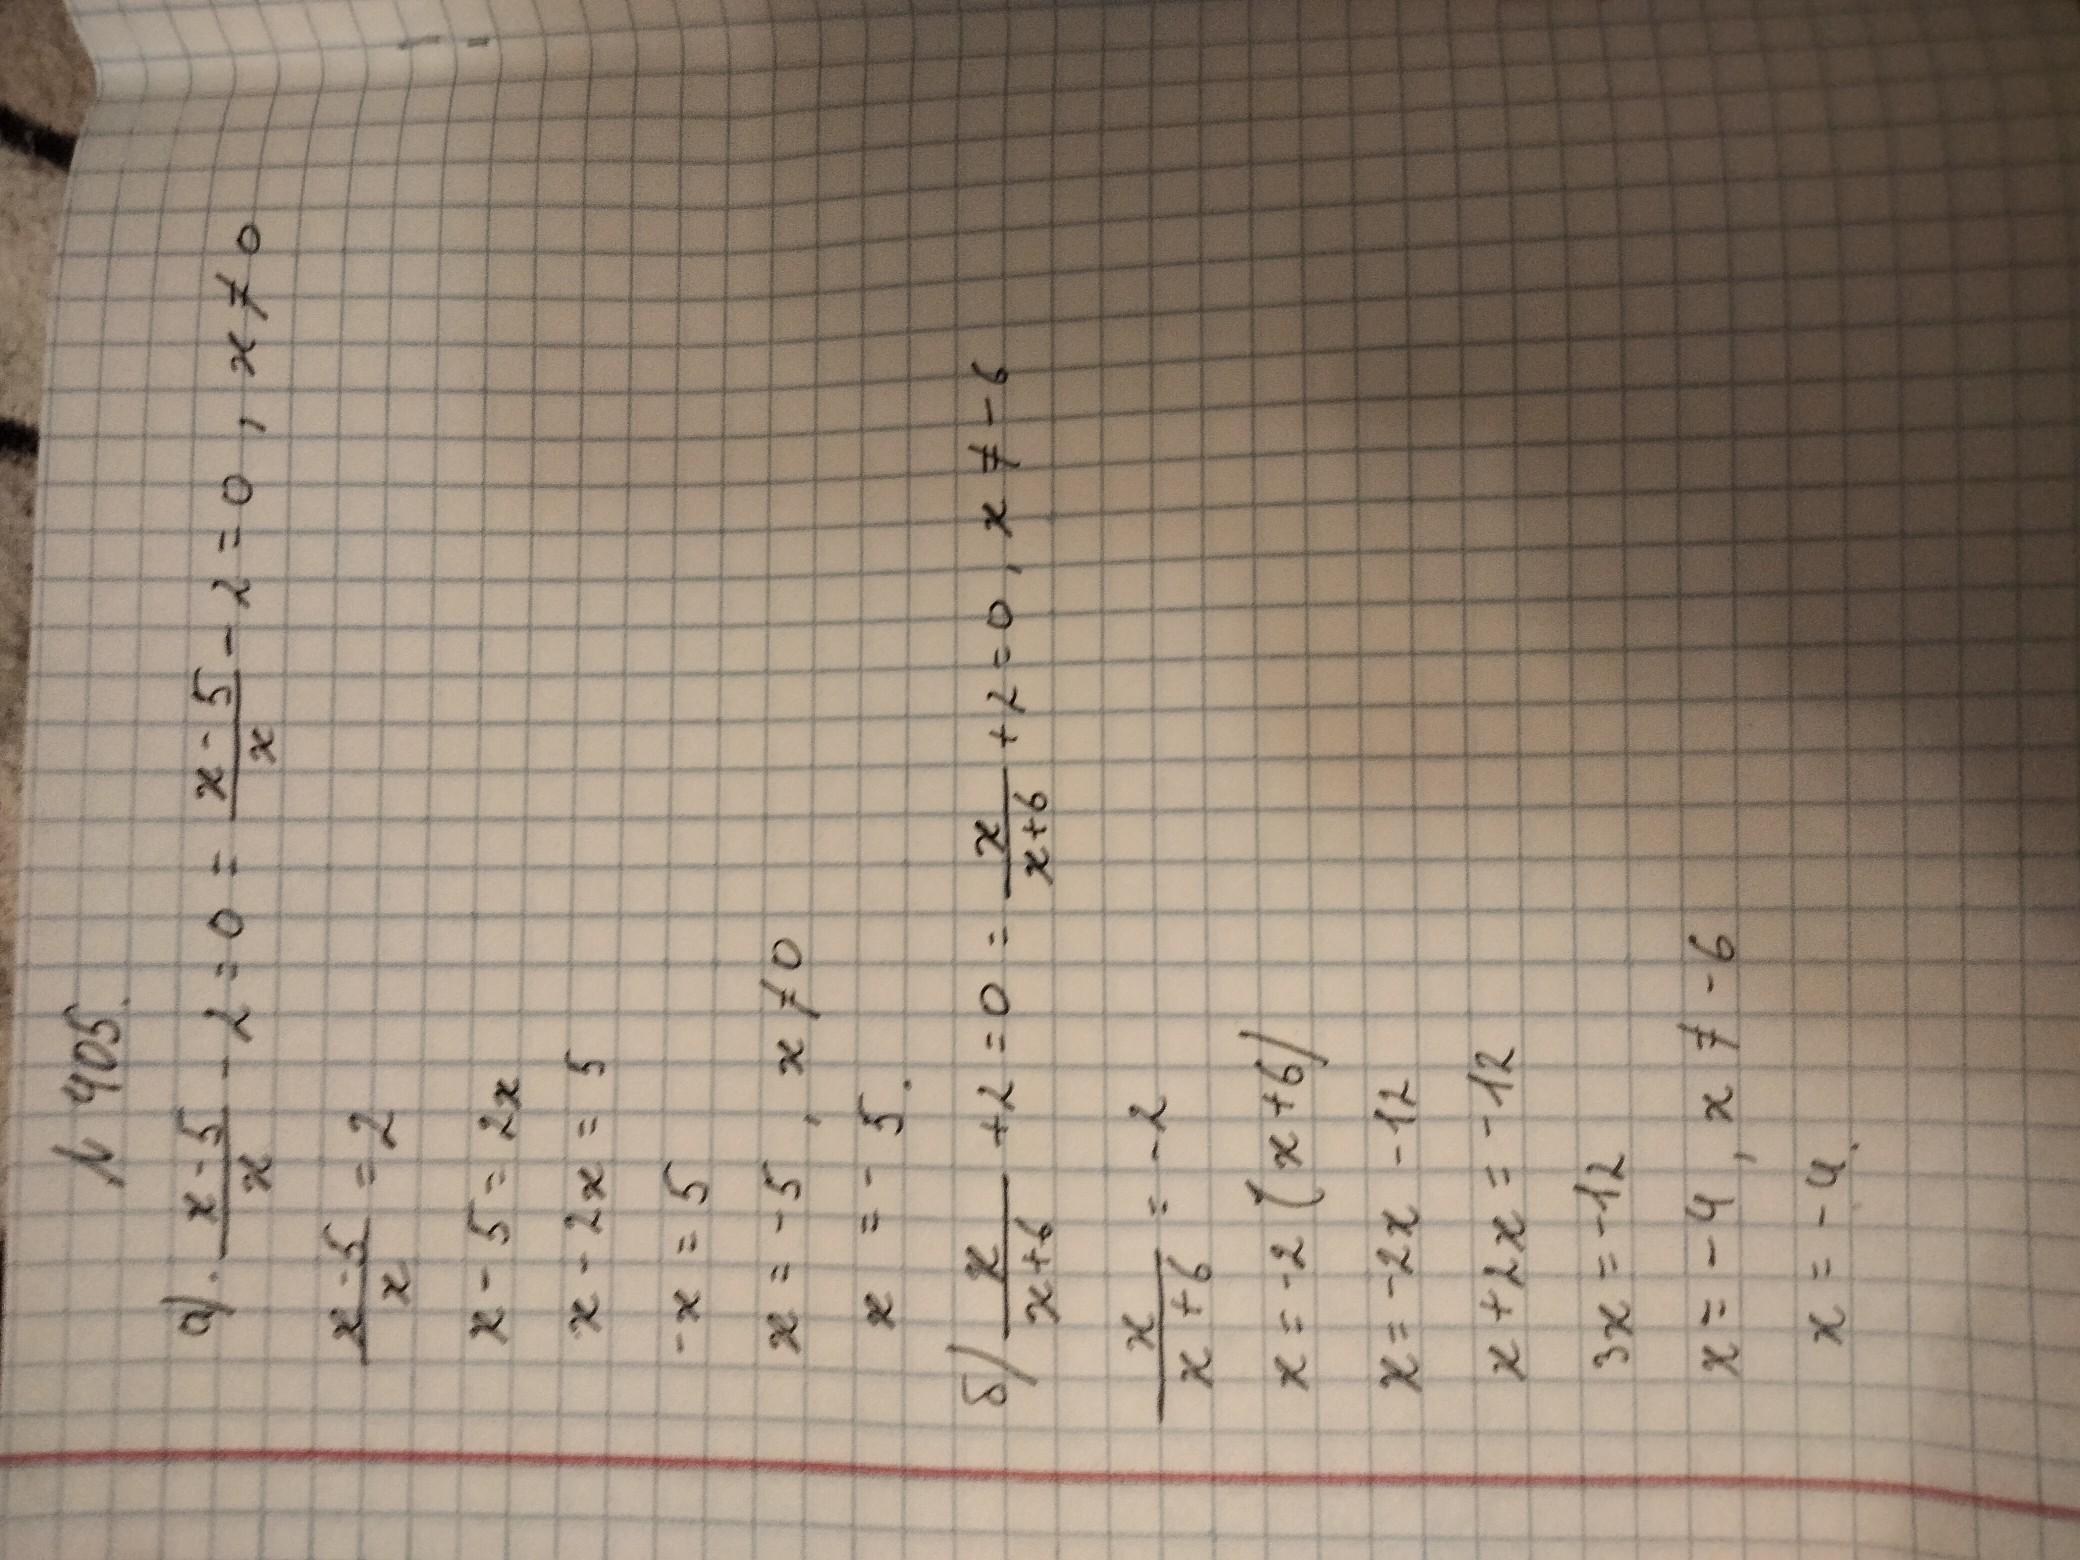 № 405.
а). x-5/x - 2 = 0 = x-5/x - 2 = 0, x ≠ 0
x-5/x = 2
x - 5 = 2x
x - 2x = 5
-x = 5
x = -5, x ≠ 0
x = -5.
б/ x/x+6 + 2 = 0 = x/x+6 + 2 = 0, x ≠ -6
x/x+6 = -2
x = -2 (x+6/
x = -2x - 12
x + 2x = -12
3x = -12
x = -4, x ≠ -6
x = -4.